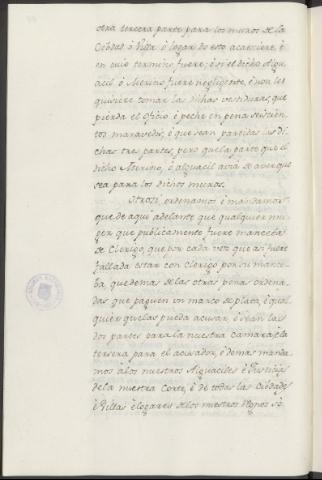 otra tercera parte para los muros de la
Cibdat ó Villa ó logar do esto acaesciere, ó
en cuio termino fuere; é si el dicho Algu-
acil ó Merino fuere negligente, é non les
quisiere tomar las dichas vestiduras, que
pierda el Oficio é peche en pena seiscien-
tos maravedis, é que sean partidos las di-
chas tres partes, pero que la parte que el
dicho Merino, ó Alguacil avia de aver que
sea para los dichos muros.
Otrosi, ordenamos é mandamos
que de aqui adelante que qualquier mu-
ger que publicamente fuere manceba
de Clerigo, que por cada vez que asi fuere
fallada estar con Clerigo por su mance-
ba, que demas de las otras penas ordena-
das que paguen un marco de plata, é qual
quier que las pueda acusar, é sean las
dos partes para la nuestra Camara, é la
tercera para el acusador, é demas manda-
mos á los nuestros Alguaciles é Justicias
de la nuestra Corte, é de todas las Cibdades
é Villas é logares de los nuestros Regnos só